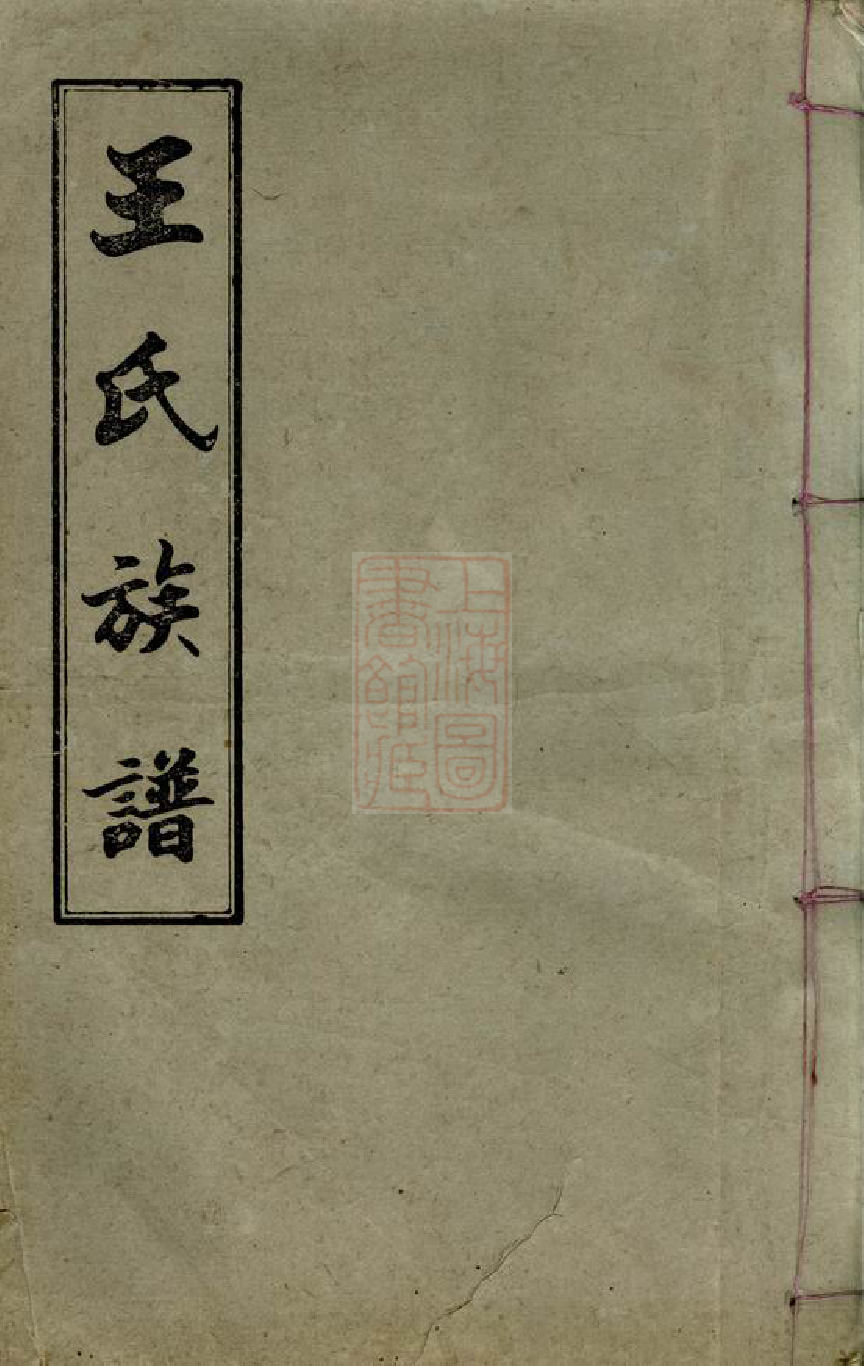 王氏族譜
上海圖
書館藏